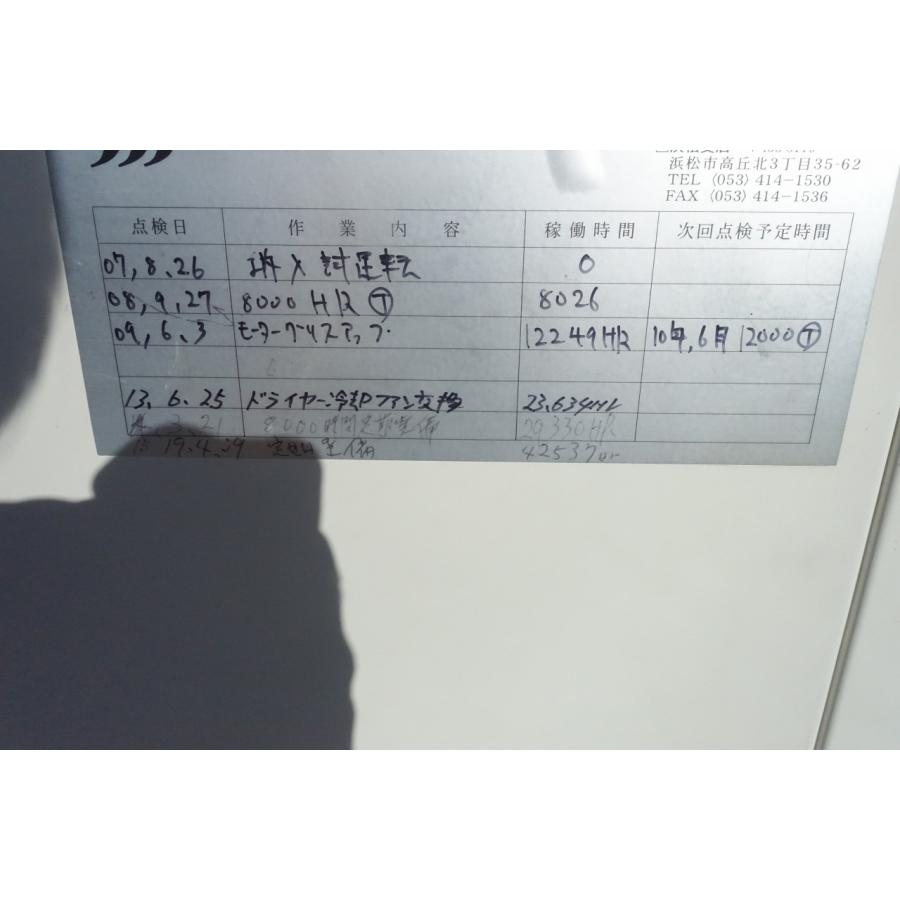 浜松市高丘北3丁目35-62
TEL (053) 414-1530
FAX (053) 414-1536
点検日 作業内容 稼働時間 次回点検予定時間
07,8,26 試運転 0
08,9,27 8000HR Ⓣ 8026
09,6,3 モーターグリスアップ 12249HR 10年,6月 12000Ⓣ
13.6.25 ドライヤー冷却ファン交換 23,634HR
3.21 8000時間定期整備 29330HR
19.4.29 整備 42537Hr